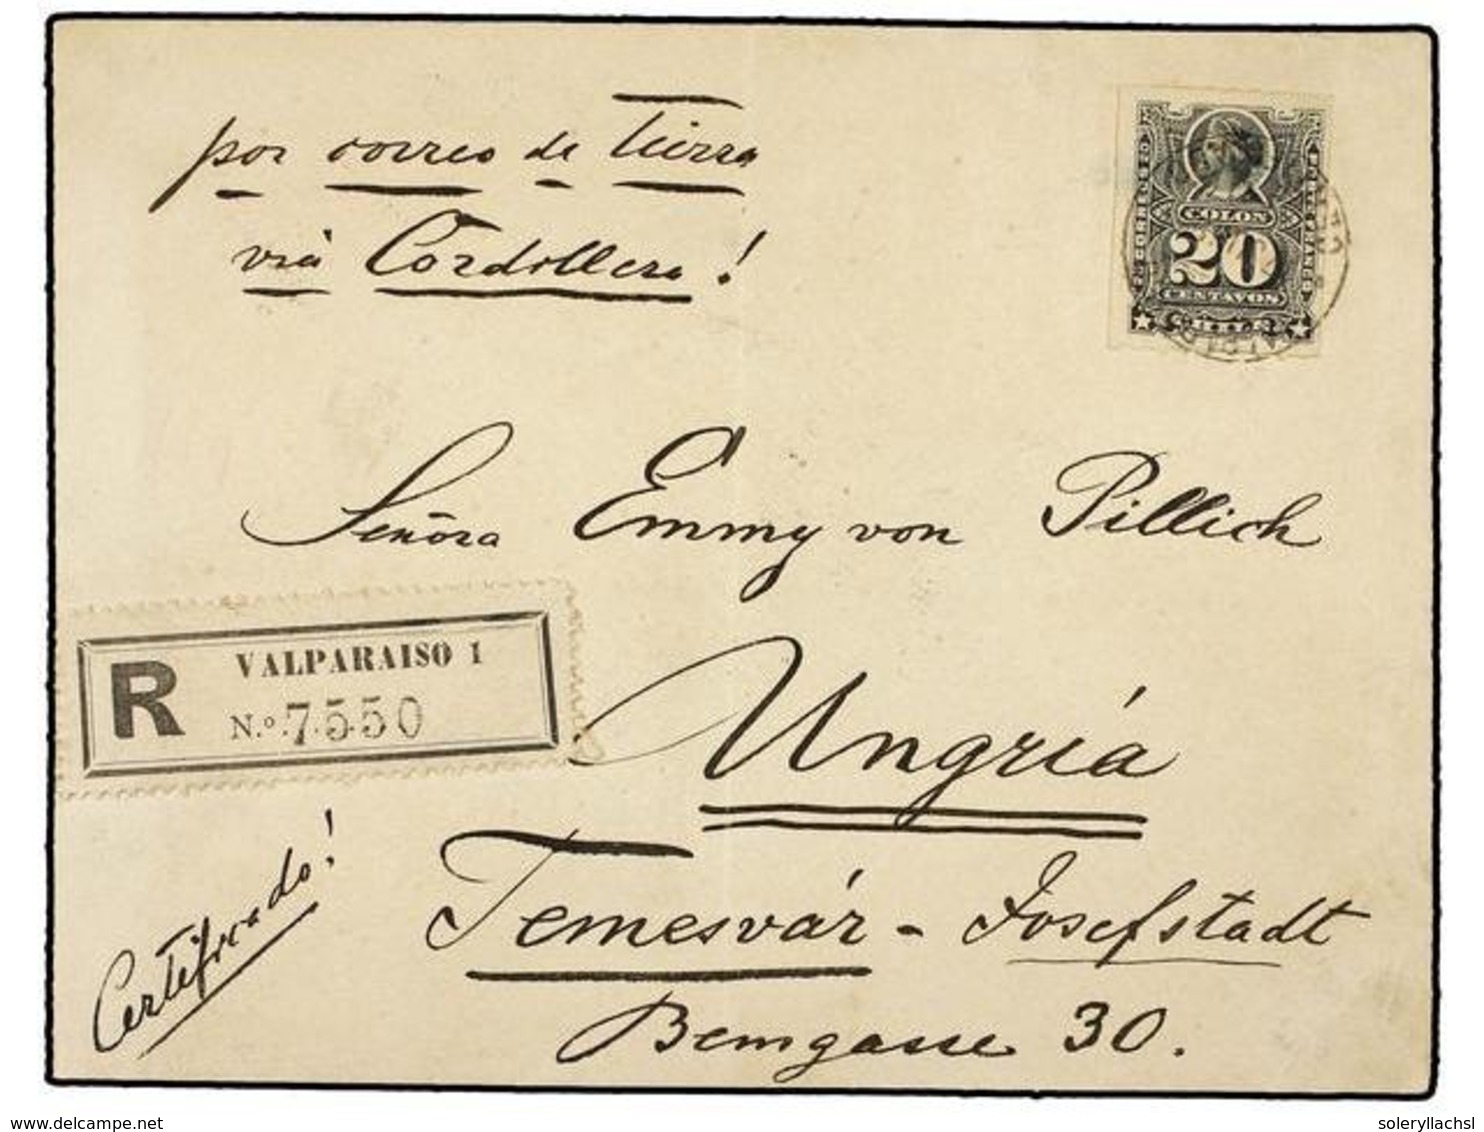 por correo de Tierra
viá Cordillera!
CORREOS
PORTE FRANCO
COLON
20
CENTAVOS
CHILE
Señora Emmy von Pillich
R
VALPARAISO 1
N.º 7550
Ungría
Temesvár - Josefstadt
Bemgasse 30.
Certificado!
delcampe.net
soleryllachsl